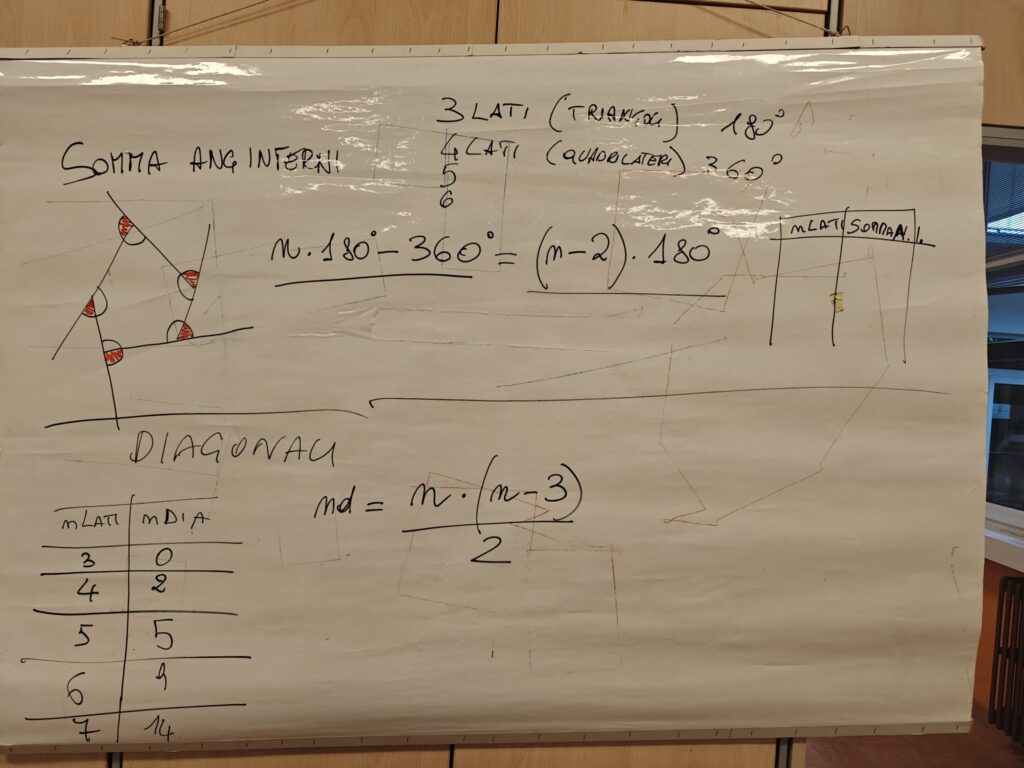 3 LATI (TRIANGOLI) 180°
SOMMA ANG INTERNI
4 LATI (QUADRILATERI) 360°
5
6
n · 180° - 360° = (n-2) · 180°
nLATI SOMMA A.I.
DIAGONALI
nd = n · (n-3) / 2
nLATI nDIA
3 0
4 2
5 5
6 9
7 14